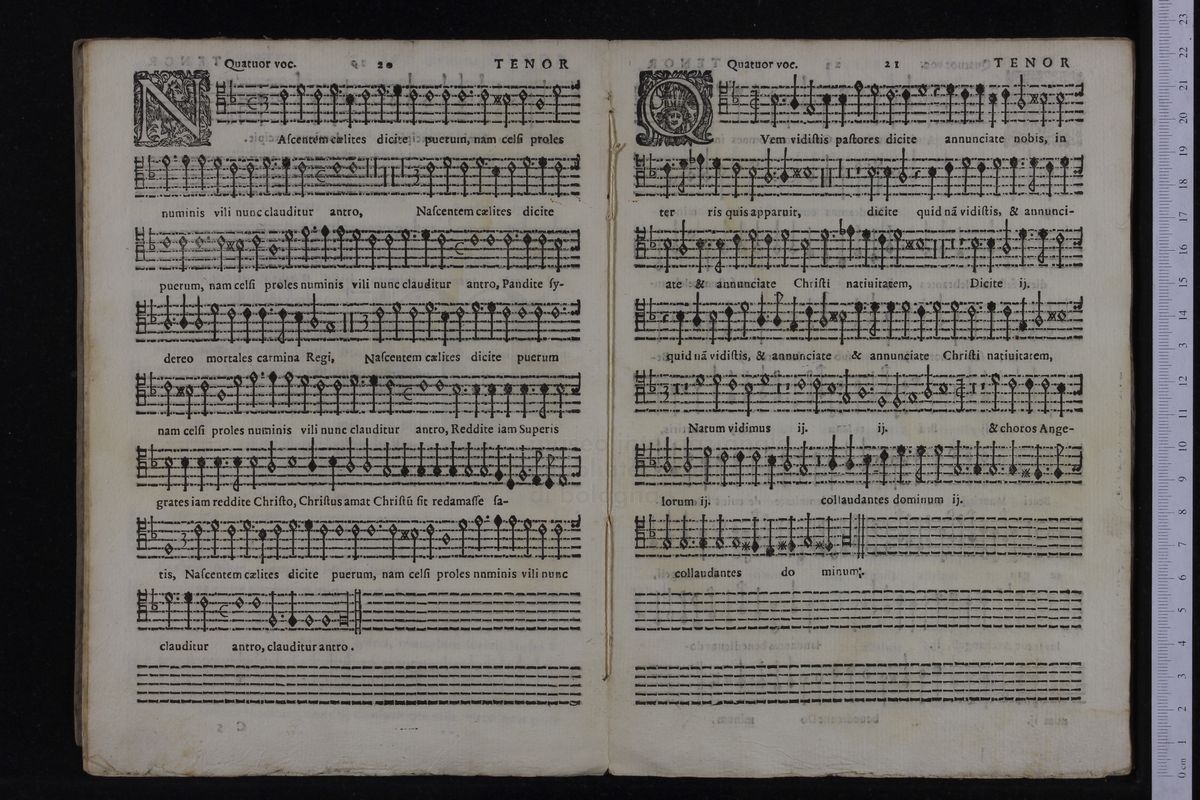 Quatuor voc. 20 TENOR
NAſcentem cælites dicite puerum, nam celſi proles
numinis vili nunc clauditur antro, Naſcentem cælites dicite
puerum, nam celſi proles numinis vili nunc clauditur antro, Pandite ſy-
dereo mortales carmina Regi, Naſcentem cælites dicite puerum
nam celſi proles numinis vili nunc clauditur antro, Reddite iam Superis
grates iam reddite Chriſto, Chriſtus amat Chriſtū ſit redamaſſe ſa-
tis, Naſcentem cælites dicite puerum, nam celſi proles numinis vili nunc
clauditur antro, clauditur antro.
Quatuor voc. 21 TENOR
QVem vidiſtis paſtores dicite annunciate nobis, in
ter ris quis apparuit, dicite quid nā vidiſtis, & annunci-
ate & annunciate Chriſti natiuitatem, Dicite ij.
quid nā vidiſtis, & annunciate & annunciate Chriſti natiuitatem,
Natum vidimus ij. ij. & choros Ange-
lorum ij. collaudantes dominum ij.
collaudantes do minum.